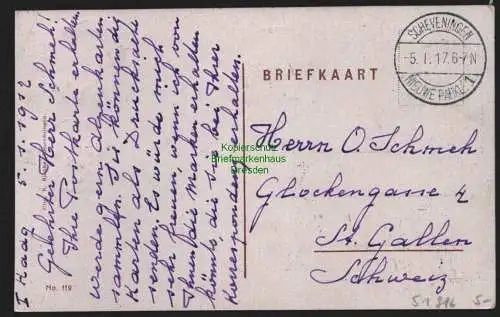 I Haag 5.1.1912
Geehrter Herr Schmeh!
Ihre Postkarte erhalten.
werde gern Alpenkarte
sammeln. Sie können da
Karten als Drucksache
senden. Es würde mich
sehr freuen, wenn ich von
Ihnen die Marken erhalten
könnte die Sie bei Ihrer
Korrespondenz erhalten.
No. 119
BRIEFKAART
SCHEVENINGEN
-5.1.17.6-7N
NIEUWE PARKL. 1
Herrn O. Schmeh
Glockengasse 4
St. Gallen
Schweiz
Kopierschutz
Briefmarkenhaus
Dresden